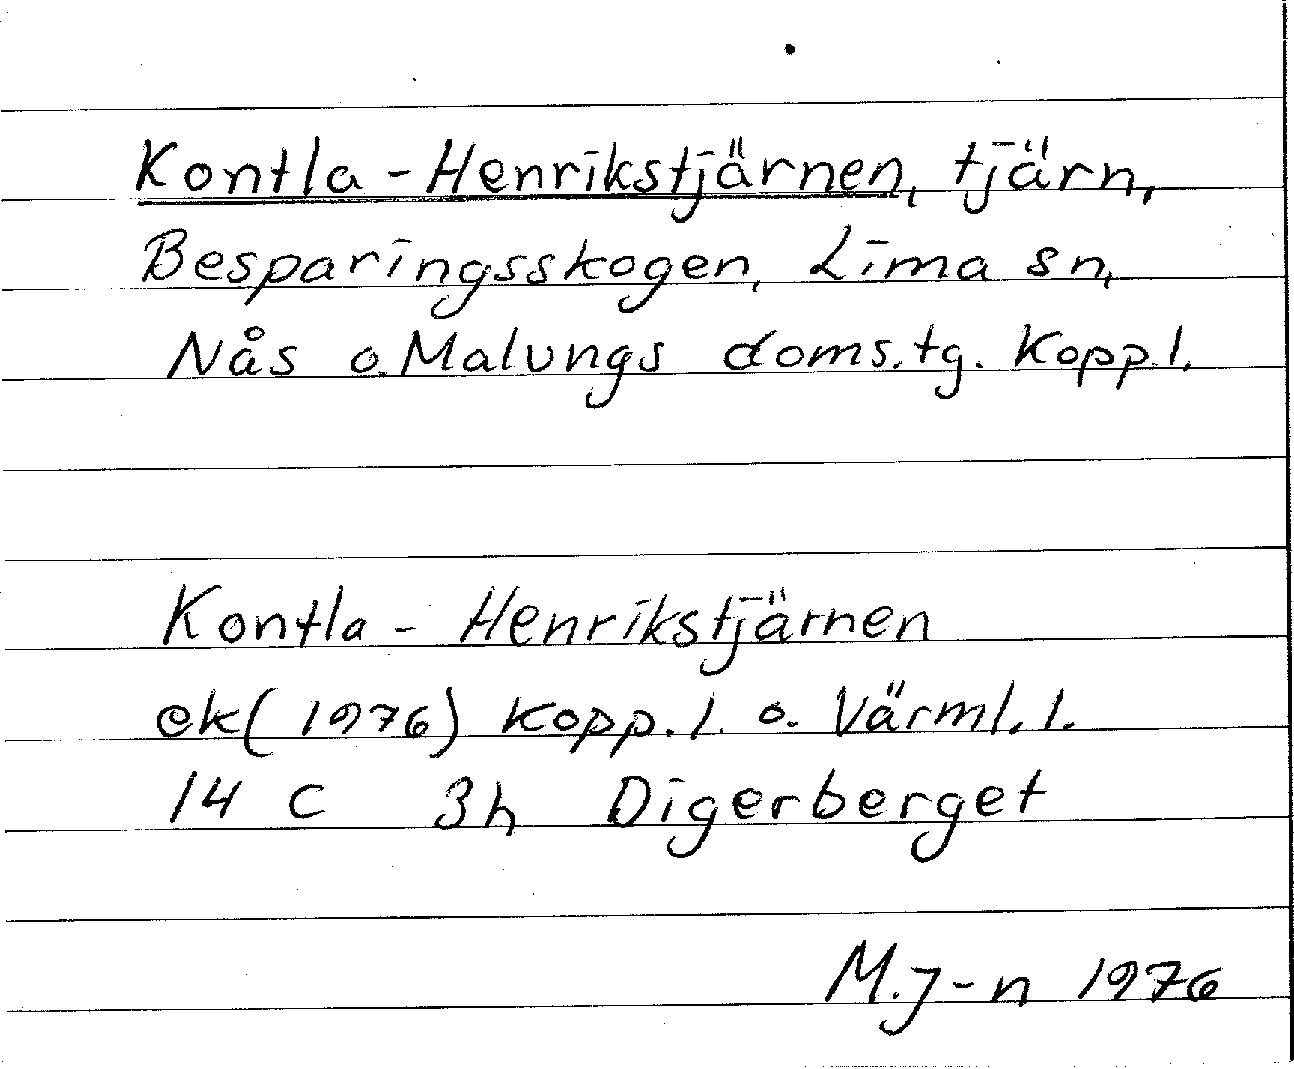 Kontla-Henrikstjärnen, tjärn,
Besparingsskogen, Lima sn,
Nås o. Malungs doms.tg. Kopp.l.
Kontla-Henrikstjärnen
ek(1976) Kopp.l. o. Värml.l.
14 C 3h Digerberget
M.J-n 1976